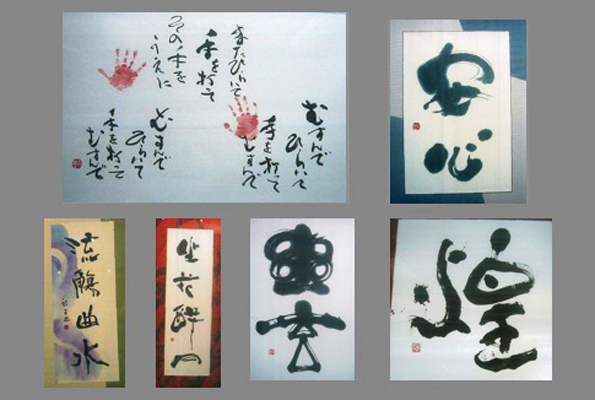 むすんで
ひらいて
手を打って
むすんで
またひらいて
手を打って
その手を
うえに
むすんで
ひらいて
手を打って
むすんで
安心
流觴曲水
坐花酔月
幽玄
煌